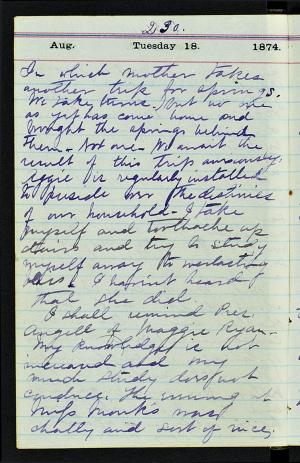 230.
Aug. Tuesday 18. 1874.
In which mother takes
another trip for springs.
We take turns. But no one
as yet has come home and
brought the springs behind
them - Not one - We await the
result of this trip anxiously.
Aggie is regularly installed
to preside over the destinies
of our household - I take
myself and toothache up
stairs and try to study
myself away to everlasting
bliss. I haven't heard
that she died.
I shall remind Pres.
Angell of Maggie Ryan -
My knowledge is not
increased and my
much study does not
conduce. The evening at
Miss Monk's was
chatty and sort of nice.